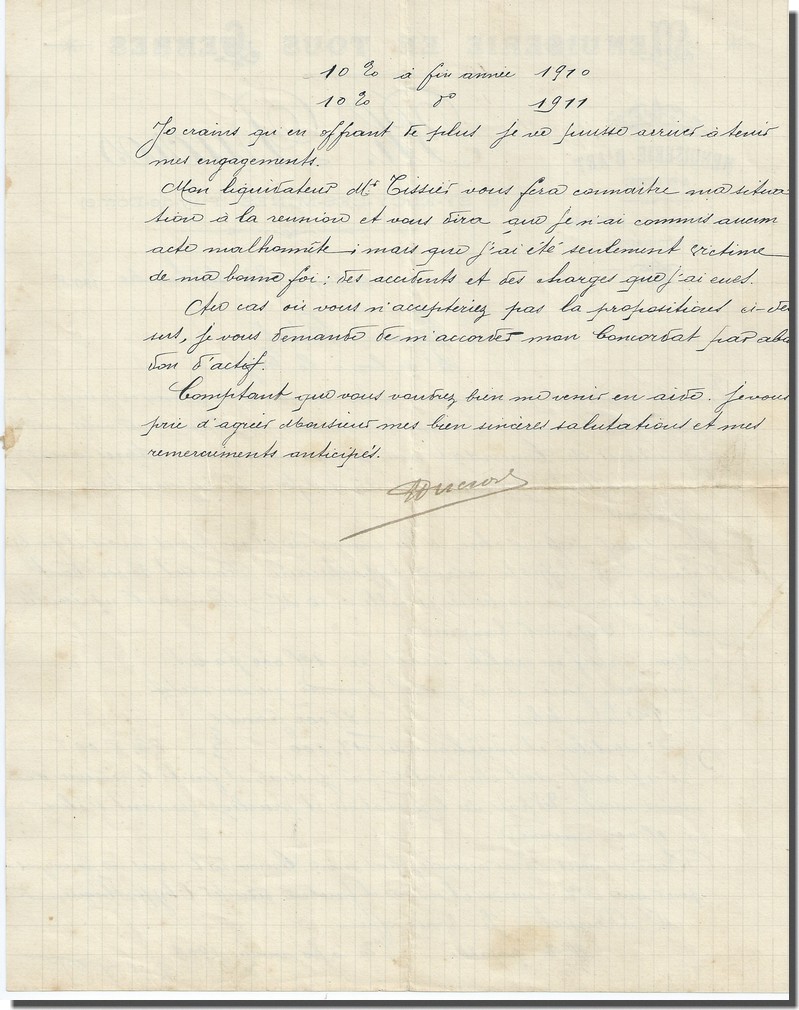 10 % à fin année 1910
10 % d° 1911
Je crains qu'en offrant de plus je ne puisse arriver à tenir
mes engagements.
Mon liquidateur Mr Tissier vous fera connaitre ma situa-
tion à la reunion et vous dira que je n'ai commis aucun
acte malhonnête ; mais que j'ai été seulement victime
de ma bonne foi ; des accidents et des charges que j'ai eues.
Au cas où vous n'accepteriez pas la propositions ci-des
sus, je vous demande de m'accorder mon Concordat par aban
don d'actif.
Comptant que vous voudrez bien me venir en aide. Je vous
prie d'agréer Monsieur mes bien sincères salutations et mes
remerciments anticipés.